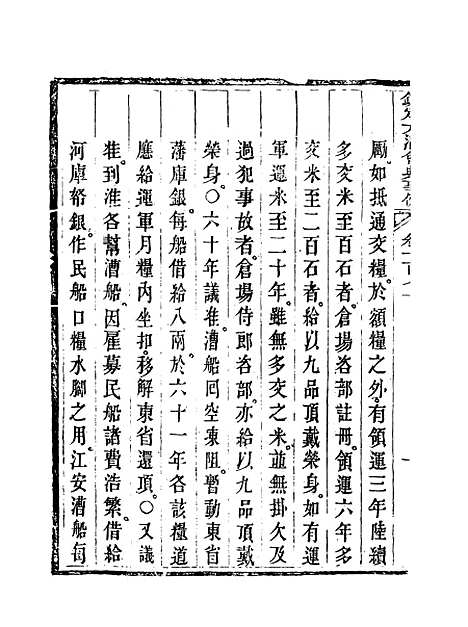 欽定大清會典事例 卷二百七
勵如抵通交糧於額糧之外有領運三年陸續
多交米至百石者倉場咨部註冊領運六年多
交米至二百石者給以九品頂戴榮身如有運
軍運米至二十年雖無多交之米並無掛欠及
過犯事故者倉場侍郎咨部亦給以九品頂戴
榮身〇六十年議准漕船回空凍阻暫動東省
藩庫銀每船借給八兩於六十一年各該糧道
應給運軍月糧內坐扣移解東省還項〇又議
准到淮各幫漕船因雇募民船諸費浩繁借給
河庫帑銀作民船口糧水腳之用江安漕船每